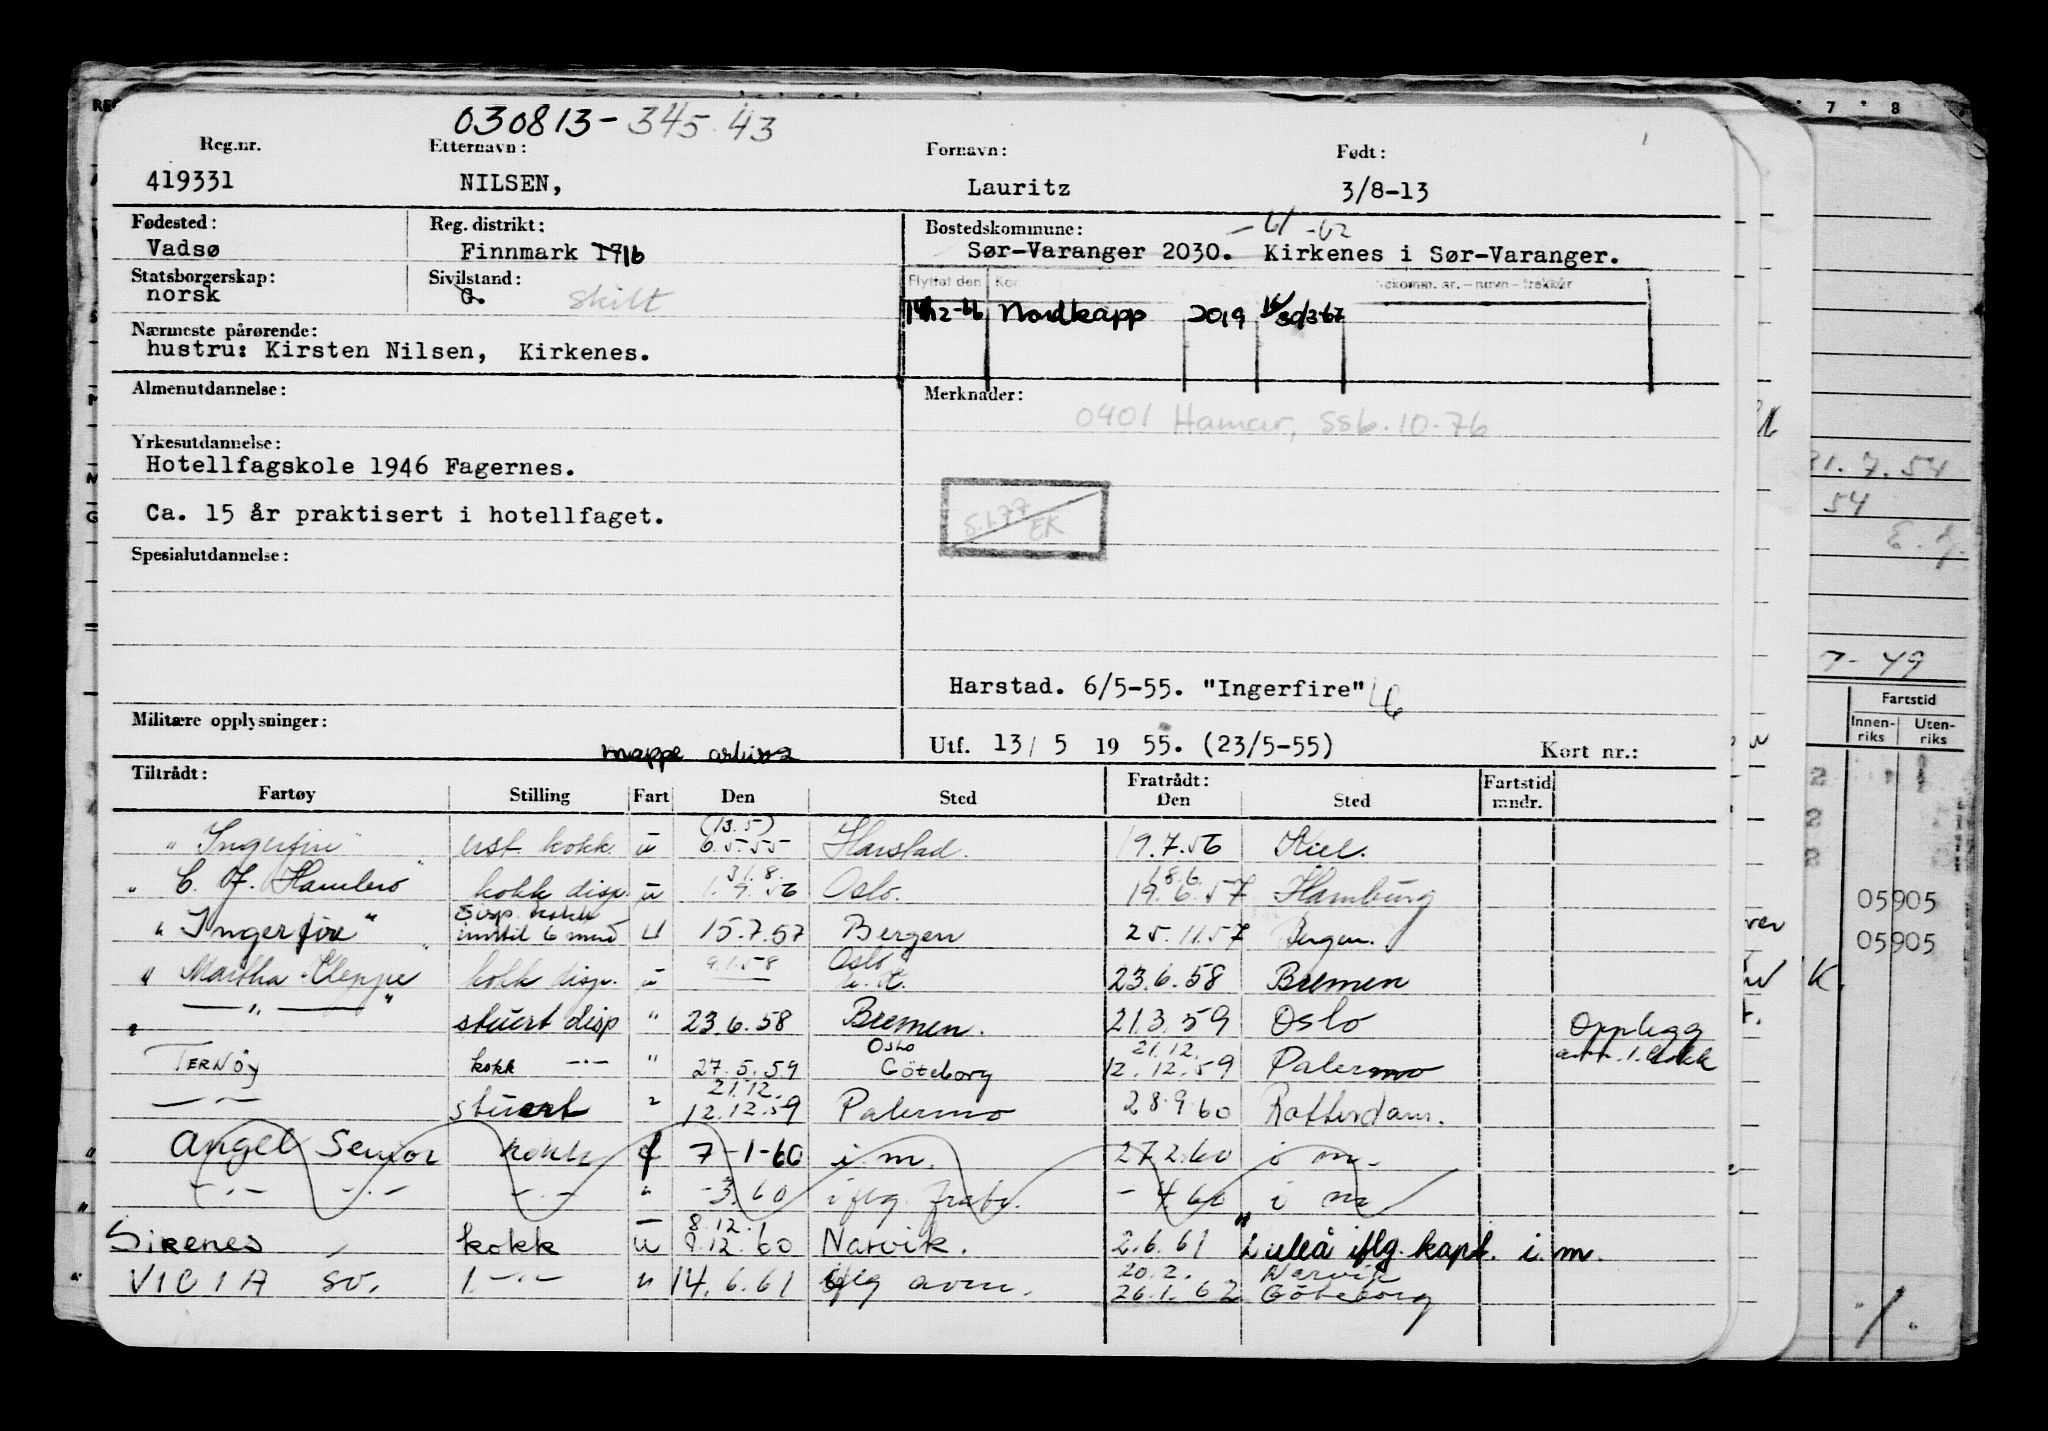 030813-345.43
Reg.nr. Etternavn: Fornavn: Født:
419331 NILSEN, Lauritz 3/8-13
Fødested: Reg. distrikt: Bostedskommune: 61 -62
Vadsø Finnmark 1716 Sør-Varanger 2030. Kirkenes i Sør-Varanger.
Statsborgerskap: Sivilstand: Flyttet den
norsk G. skilt
-66 Nordkapp 2019
Nærmeste pårørende:
hustru: Kirsten Nilsen, Kirkenes.
Almenutdannelse: Merknader:
0401 Hamar, SSb. 10.76
Yrkesutdannelse:
Hotellfagskole 1946 Fagernes.
Ca. 15 år praktisert i hotellfaget.
5.1.77 EK
Spesialutdannelse:
Harstad. 6/5-55. "Ingerfire"
Militære opplysninger:
mappe
Utf. 13/ 5 19 55. (23/5-55) Kort nr.:
Tiltrådt: Fratrådt: Fartstid
Fartøy Stilling Fart Den Sted Den Sted mndr.
(13.5)
"Ingerfire" kokk u 6.5.55 Harstad. 19.7.56 Kiel.
31.8. 18.6.
"C. J. Hambro" kokk disp. u 1.9.56 Oslo. 19.6.57 Hamburg
disp. kokk
"Ingerfire" inntil 6 mnd u 15.7.57 Bergen 25.11.57 Bergen.
9.1.58 Oslo
"Martha Kleppe" kokk disp. u 23.6.58 Bremen
" — " — " stuert disp " 23.6.58 Bremen. 21.3.59 Oslo Opplegg
Oslo 21.12.
TERNØY kokk —"— " 27.5.59 Göteborg 12.12.59 Palermo 1. kokk
21.12.
—"— stuert " 12.12.59 Palermo 28.9.60 Rotterdam.
" Angel Senior kokk f 7-1-60 i.m. 27.2.60 i m.
" —"— —"— —"— " -3.60 iflg. -4.60 i m
8.12.
Sirenes kokk u 9.12.60 Narvik. 2.6.61 Luleå iflg. kapt. i.m.
20.2. Narvik
" VICIA sv. 1 —"— " 14.6.61 iflg avm. 26.1.62 Göteborg
7 8
21.7.54
54
7-49
Fartstid
Innen- Uten-
riks riks
2
2
2
05905
05905
K.